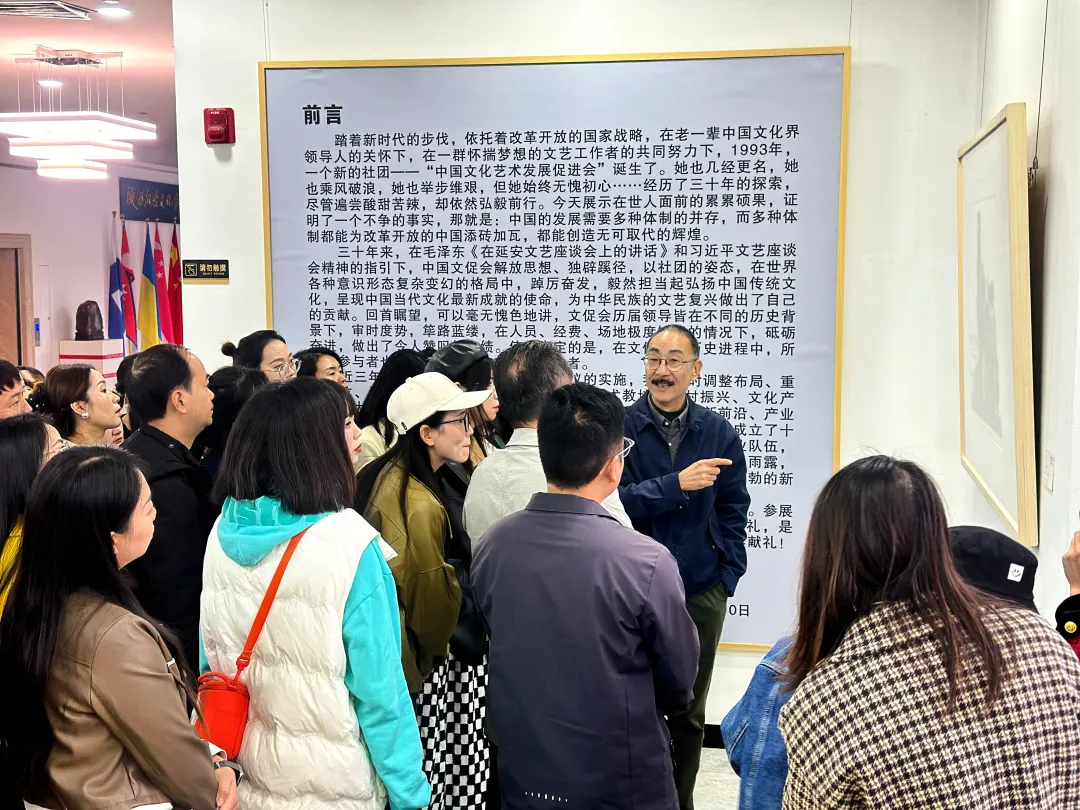 前言
踏着新时代的步伐，依托着改革开放的国家战略，在老一辈中国文化界
领导人的关怀下，在一群怀揣梦想的文艺工作者的共同努力下，1993年，
一个新的社团——“中国文化艺术发展促进会”诞生了。她也几经更名，她
也乘风破浪，她也举步维艰，但她始终无愧初心……经历了三十年的探索，
尽管遍尝酸甜苦辣，却依然弘毅前行。今天展示在世人面前的累累硕果，证
明了一个不争的事实，那就是：中国的发展需要多种体制的并存，而多种体
制都能为改革开放的中国添砖加瓦，都能创造无可取代的辉煌。
三十年来，在毛泽东《在延安文艺座谈会上的讲话》和习近平文艺座谈
会精神的指引下，中国文促会解放思想、独辟蹊径，以社团的姿态，在世界
各种意识形态复杂变幻的格局中，踔厉奋发，毅然担当起弘扬中国传统文
化，呈现中国当代文化最新成就的使命，为中华民族的文艺复兴做出了自己
的贡献。回首瞩望，可以毫无愧色地讲，文促会历届领导皆在不同的历史背
景下，审时度势，筚路蓝缕，在人员、经费、场地极度 的情况下，砥砺
奋进，做出了令人赞 绩。 定的是，在文 史进程中，所
参与者 者。
近三年 的实施， 时调整布局、重
术教 村振兴、文化产
新前沿、产业
成立了十
业队伍，
雨露，
勃的新
。参展
礼，是
献礼！
0日
请勿触摸